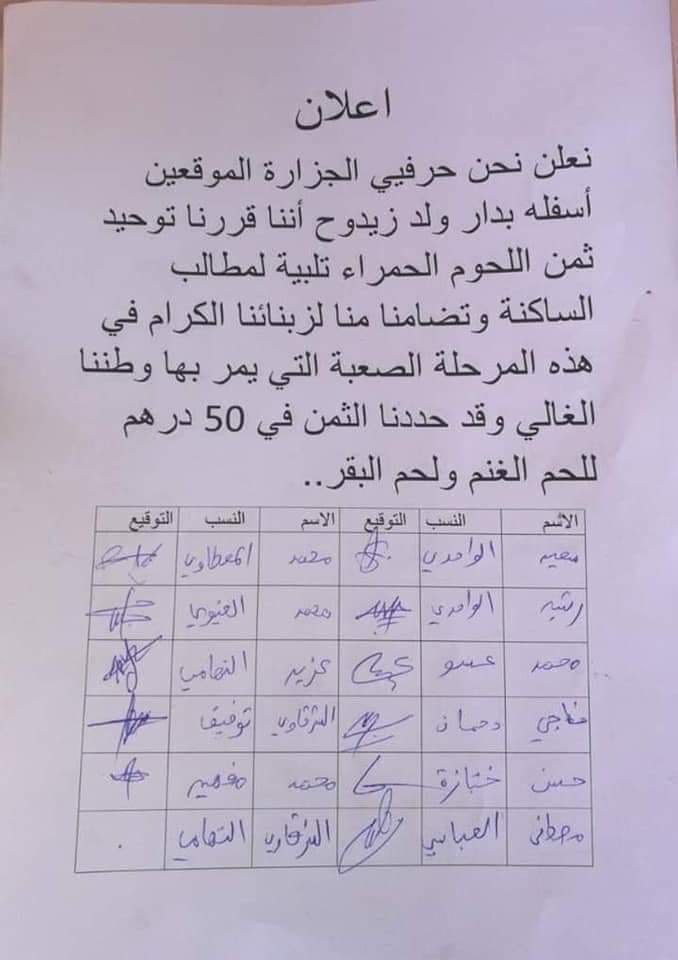 اعلان
نعلن نحن حرفيي الجزارة الموقعين
أسفله بدار ولد زيدوح أننا قررنا توحيد
ثمن اللحوم الحمراء تلبية لمطالب
الساكنة وتضامنا منا لزبنائنا الكرام في
هذه المرحلة الصعبة التي يمر بها وطننا
الغالي وقد حددنا الثمن في 50 درهم
للحم الغنم ولحم البقر..
الاسم النسب التوقيع الاسم النسب التوقيع
الوامدي محمد المعطاوي
الوامدي محمد
محمد عسو عزيز التهامي
ناجي دحمان الشرقاوي توفيق
حسن خبازة محمد
مصطفى العباسي الشرقاوي التهامي